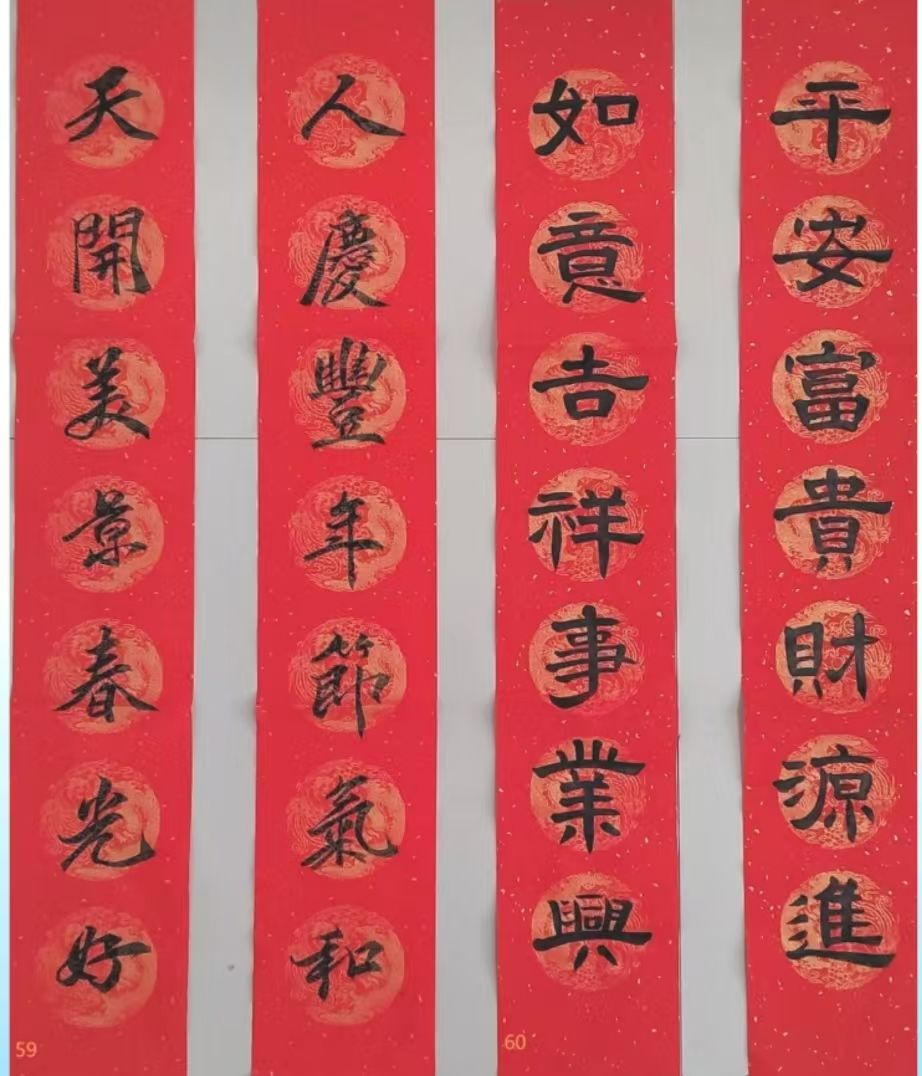 平安富貴財源進
如意吉祥事業興
人慶豐年節氣和
天開美景春光好
60
59